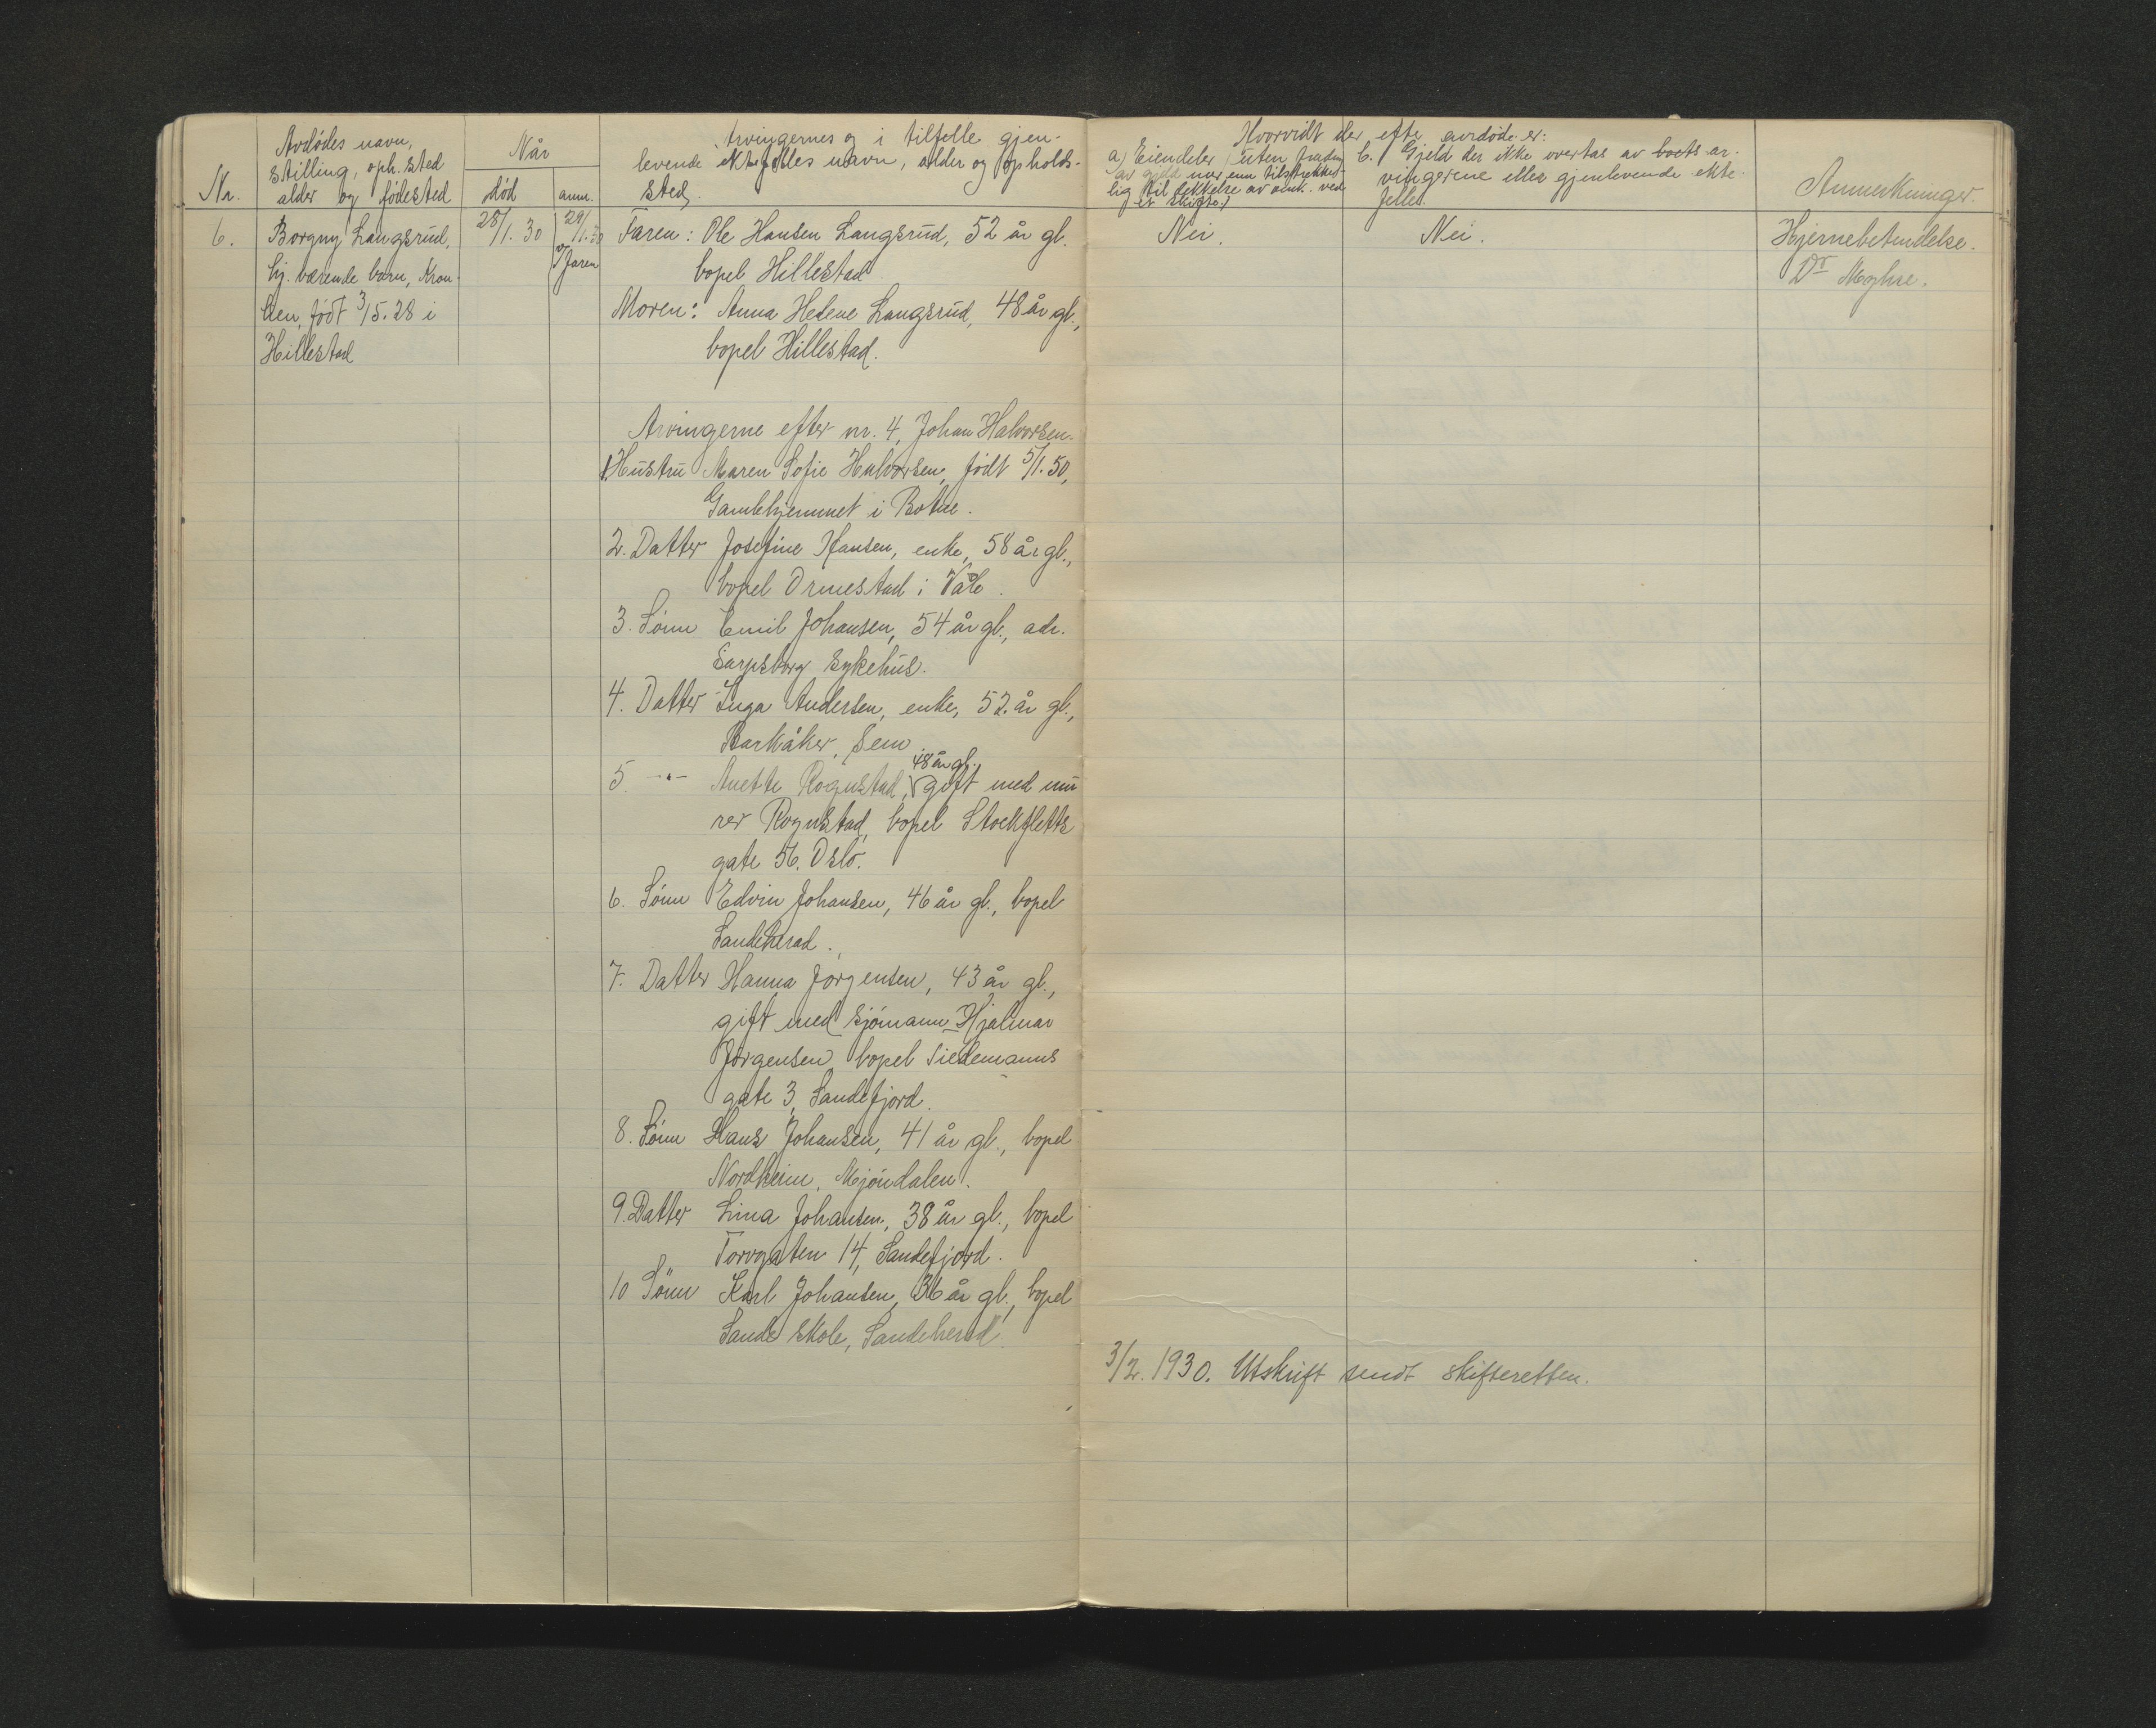 Nr.
Avdødes navn,
stilling, oph. sted
alder og fødested
Når
død
anm.
Arvingernes og i tilfelle gjen-
levende ektefelles navn, alder og opholds-
sted.
Hvorvidt der efter avdøde er:
a) Eiendeler uten fradrag
av gjeld mer enn tilstrekke-
lig til dekkelse av omk. ved
et skifte.)
b. Gjeld der ikke overtas av boets ar-
vingerne eller gjenlevende ekte-
felle.
Anmerkninger.
6.
Borgny Langsrud,
hj. værende barn, Kron-
lien, født 3/5.28 i
Hillestad
28/1.30
29/1.30
v/ faren
Faren: Ole Hansen Langsrud, 52 år gl.
bopel Hillestad
Moren: Anna Helene Langsrud, 48 år gl.,
bopel Hillestad.
Nei.
Nei.
Hjernebetendelse.
Dr
Arvingerne efter nr. 4, Johan Halvorsen.
1. Hustru Maren Sofie Halvorsen, født 5/1.50,
Gamlehjemmet i Botne.
2. Datter Josefine Hansen, enke, 58 år gl.,
bopel Ormestad i Våle.
3. Sønn Emil Johansen, 54 år gl., adr.
Sarpsborg sykehus.
4. Datter Inga Andersen, enke, 52 år gl.,
Barkåker, Sem
5. -"- Anette Rognstad, 48 år gl. gift med mu-
rer Rognstad, bopel Stockfletts
gate 56. Oslo.
6. Sønn Edvin Johansen, 46 år gl., bopel
Sandeherad.
7. Datter Hanna Jørgensen, 43 år gl.,
gift med sjømann Hjalmar
Jørgensen, bopel Tiedemanns
gate 3, Sandefjord.
8. Sønn Hans Johansen, 41 år gl., bopel
Nordheim, Mjøndalen.
9. Datter Lina Johansen, 38 år gl., bopel
Torvgaten 14, Sandefjord.
10 Sønn Karl Johansen, 36 år gl., bopel
Sande skole, Sandeherad.
3/2. 1930. Utskrift sendt skifteretten.